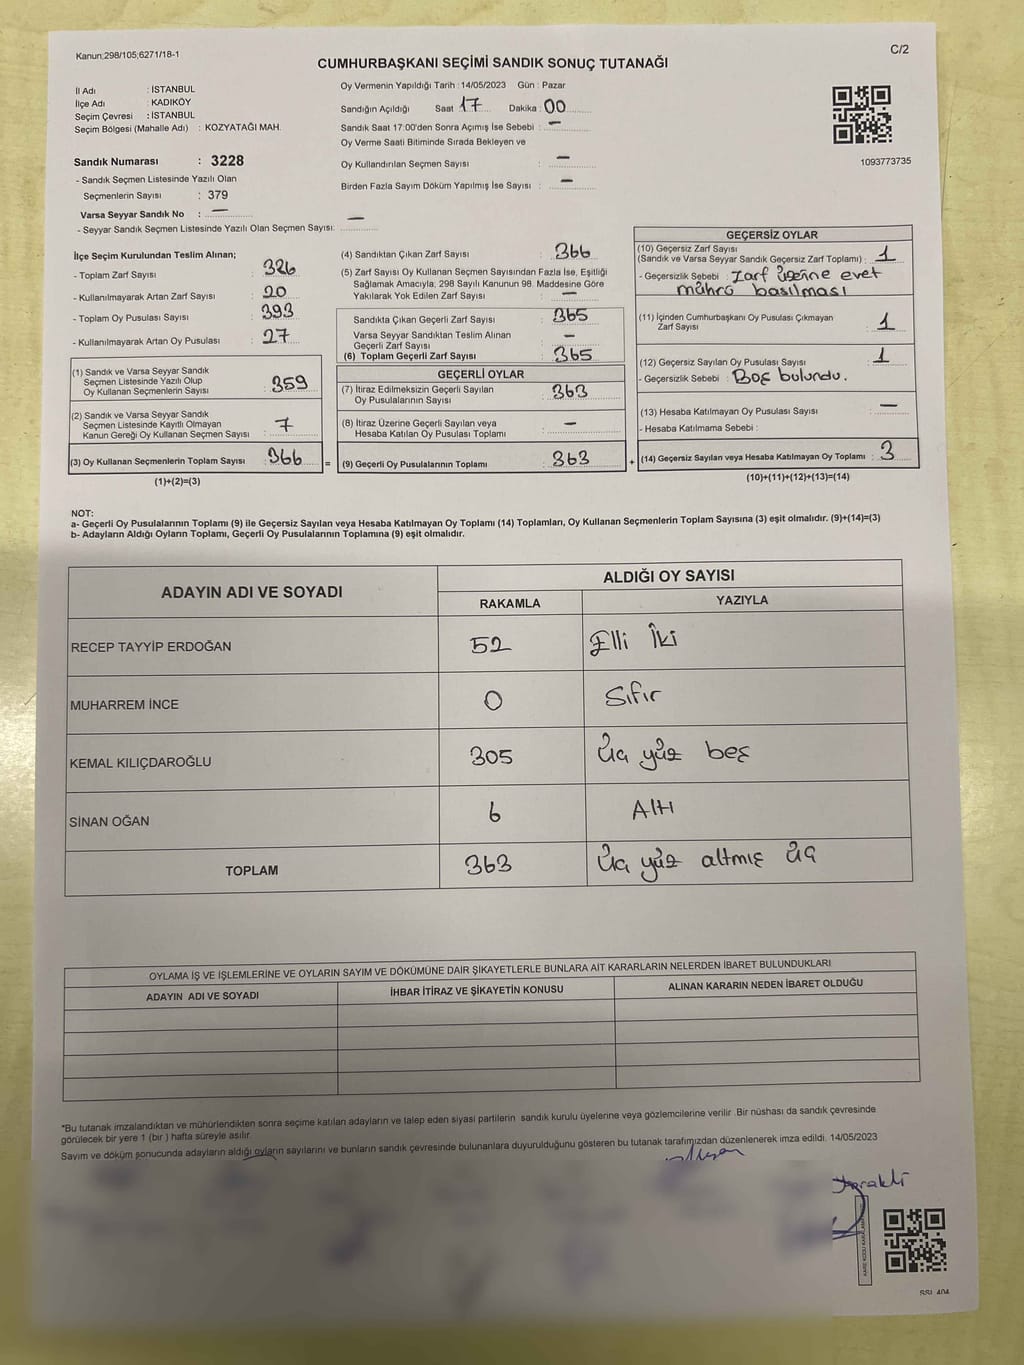 Kanun;298/105;6271/18-1
C/2
CUMHURBAŞKANI SEÇİMİ SANDIK SONUÇ TUTANAĞI
İl Adı : İSTANBUL
İlçe Adı : KADIKÖY
Seçim Çevresi : İSTANBUL
Seçim Bölgesi (Mahalle Adı) : KOZYATAĞI MAH.
Sandık Numarası : 3228
- Sandık Seçmen Listesinde Yazılı Olan
Seçmenlerin Sayısı : 379
Varsa Seyyar Sandık No : —
- Seyyar Sandık Seçmen Listesinde Yazılı Olan Seçmen Sayısı: —
Oy Vermenin Yapıldığı Tarih : 14/05/2023 Gün : Pazar
Sandığın Açıldığı Saat 17 Dakika : 00
Sandık Saat 17:00'den Sonra Açımış İse Sebebi : —
Oy Verme Saati Bitiminde Sırada Bekleyen ve
Oy Kullandırılan Seçmen Sayısı : —
Birden Fazla Sayım Döküm Yapılmış İse Sayısı : —
1093773735
İlçe Seçim Kurulundan Teslim Alınan;
- Toplam Zarf Sayısı : 386
- Kullanılmayarak Artan Zarf Sayısı : 20
- Toplam Oy Pusulası Sayısı : 393
- Kullanılmayarak Artan Oy Pusulası : 27
(1) Sandık ve Varsa Seyyar Sandık
Seçmen Listesinde Yazılı Olup
Oy Kullanan Seçmenlerin Sayısı : 359
(2) Sandık ve Varsa Seyyar Sandık
Seçmen Listesinde Kayıtlı Olmayan
Kanun Gereği Oy Kullanan Seçmen Sayısı : 7
(3) Oy Kullanan Seçmenlerin Toplam Sayısı : 366
(1)+(2)=(3)
=
(4) Sandıktan Çıkan Zarf Sayısı : 366
(5) Zarf Sayısı Oy Kullanan Seçmen Sayısından Fazla İse, Eşitliği
Sağlamak Amacıyla, 298 Sayılı Kanunun 98. Maddesine Göre
Yakılarak Yok Edilen Zarf Sayısı : —
Sandıkta Çıkan Geçerli Zarf Sayısı : 365
Varsa Seyyar Sandıktan Teslim Alınan
Geçerli Zarf Sayısı : —
(6) Toplam Geçerli Zarf Sayısı : 365
GEÇERLİ OYLAR
(7) İtiraz Edilmeksizin Geçerli Sayılan
Oy Pusulalarının Sayısı : 363
(8) İtiraz Üzerine Geçerli Sayılan veya
Hesaba Katılan Oy Pusulası Toplamı : —
(9) Geçerli Oy Pusulalarının Toplamı : 363
+
GEÇERSİZ OYLAR
(10) Geçersiz Zarf Sayısı
(Sandık ve Varsa Seyyar Sandık Geçersiz Zarf Toplamı) : 1
- Geçersizlik Sebebi : Zarf üzerine evet
mührü basılması
(11) İçinden Cumhurbaşkanı Oy Pusulası Çıkmayan
Zarf Sayısı : 1
(12) Geçersiz Sayılan Oy Pusulası Sayısı : 1
- Geçersizlik Sebebi : Boş bulundu.
(13) Hesaba Katılmayan Oy Pusulası Sayısı : —
- Hesaba Katılmama Sebebi :
(14) Geçersiz Sayılan veya Hesaba Katılmayan Oy Toplamı : 3
(10)+(11)+(12)+(13)=(14)
NOT:
a- Geçerli Oy Pusulalarının Toplamı (9) ile Geçersiz Sayılan veya Hesaba Katılmayan Oy Toplamı (14) Toplamları, Oy Kullanan Seçmenlerin Toplam Sayısına (3) eşit olmalıdır. (9)+(14)=(3)
b- Adayların Aldığı Oyların Toplamı, Geçerli Oy Pusulalarının Toplamına (9) eşit olmalıdır.
ADAYIN ADI VE SOYADI
ALDIĞI OY SAYISI
RAKAMLA YAZIYLA
RECEP TAYYİP ERDOĞAN 52 Elli İki
MUHARREM İNCE 0 Sıfır
KEMAL KILIÇDAROĞLU 305 Üç yüz beş
SİNAN OĞAN 6 Altı
TOPLAM 363 Üç yüz altmış üç
OYLAMA İŞ VE İŞLEMLERİNE VE OYLARIN SAYIM VE DÖKÜMÜNE DAİR ŞİKAYETLERLE BUNLARA AİT KARARLARIN NELERDEN İBARET BULUNDUKLARI
ADAYIN ADI VE SOYADI İHBAR İTİRAZ VE ŞİKAYETİN KONUSU ALINAN KARARIN NEDEN İBARET OLDUĞU
*Bu tutanak imzalandıktan ve mühürlendikten sonra seçime katılan adayların ve talep eden siyasi partilerin sandık kurulu üyelerine veya gözlemcilerine verilir .Bir nüshası da sandık çevresinde
görülecek bir yere 1 (bir ) hafta süreyle asılır.
Sayım ve döküm sonucunda adayların aldığı oyların sayılarını ve bunların sandık çevresinde bulunanlara duyurulduğunu gösteren bu tutanak tarafımızdan düzenlenerek imza edildi. 14/05/2023